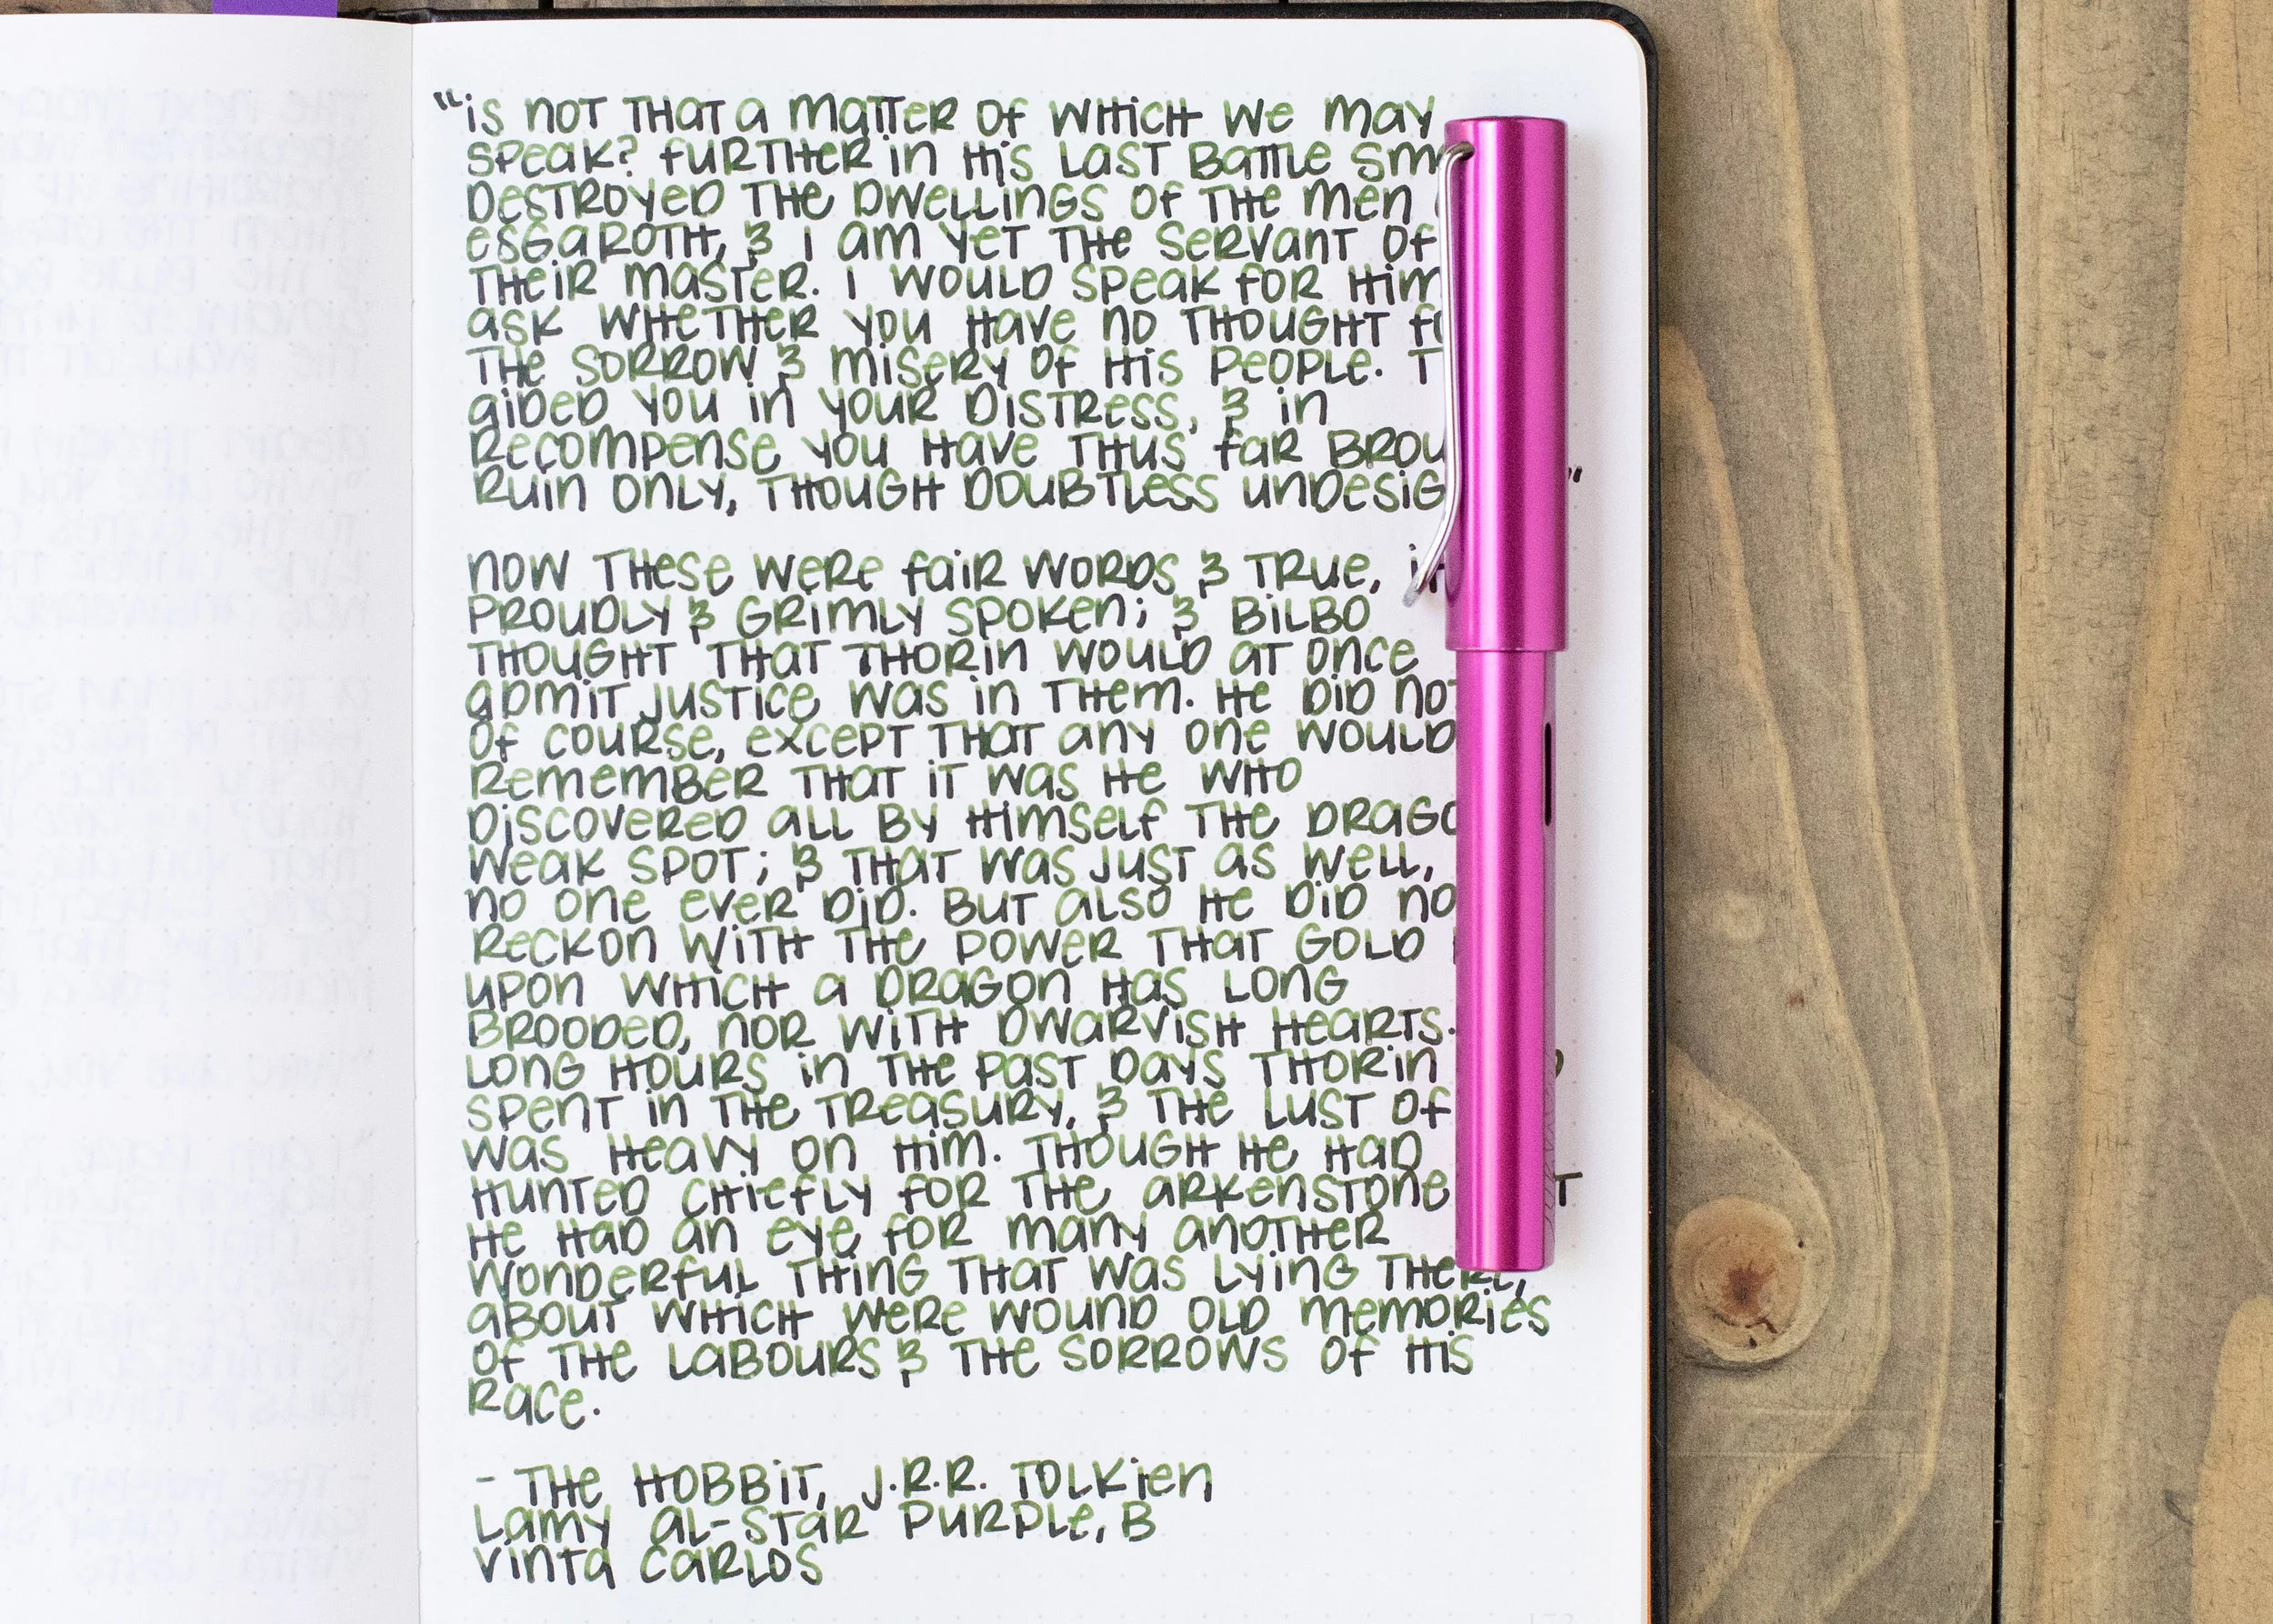 "is not that a matter of which we may
speak? Further in his last battle
destroyed the dwellings of the men
Esgaroth, & I am yet the servant of
their master. I would speak for him
ask whether you have no thought
the sorrow & misery of his people.
aided you in your distress, & in
recompense you have thus far
ruin only, though doubtless "
Now these were fair words & true,
proudly & grimly spoken; & Bilbo
thought that Thorin would at once
admit justice was in them. He did not
of course, except that any one would
remember that it was he who
discovered all by himself the
weak spot; & that was just as well,
no one ever did. But also he did
reckon with the power that gold
upon which a dragon has long
brooded, nor with dwarvish hearts.
Long hours in the past days Thorin
spent in the treasury, & the lust of
was heavy on him. Though he had
hunted chiefly for the Arkenstone
he had an eye for many another
wonderful thing that was lying there,
about which were wound old memories
of the labours & the sorrows of his
race.
- The Hobbit, J.R.R. Tolkien
Lamy Al-Star Purple, B
Vinta Carlos